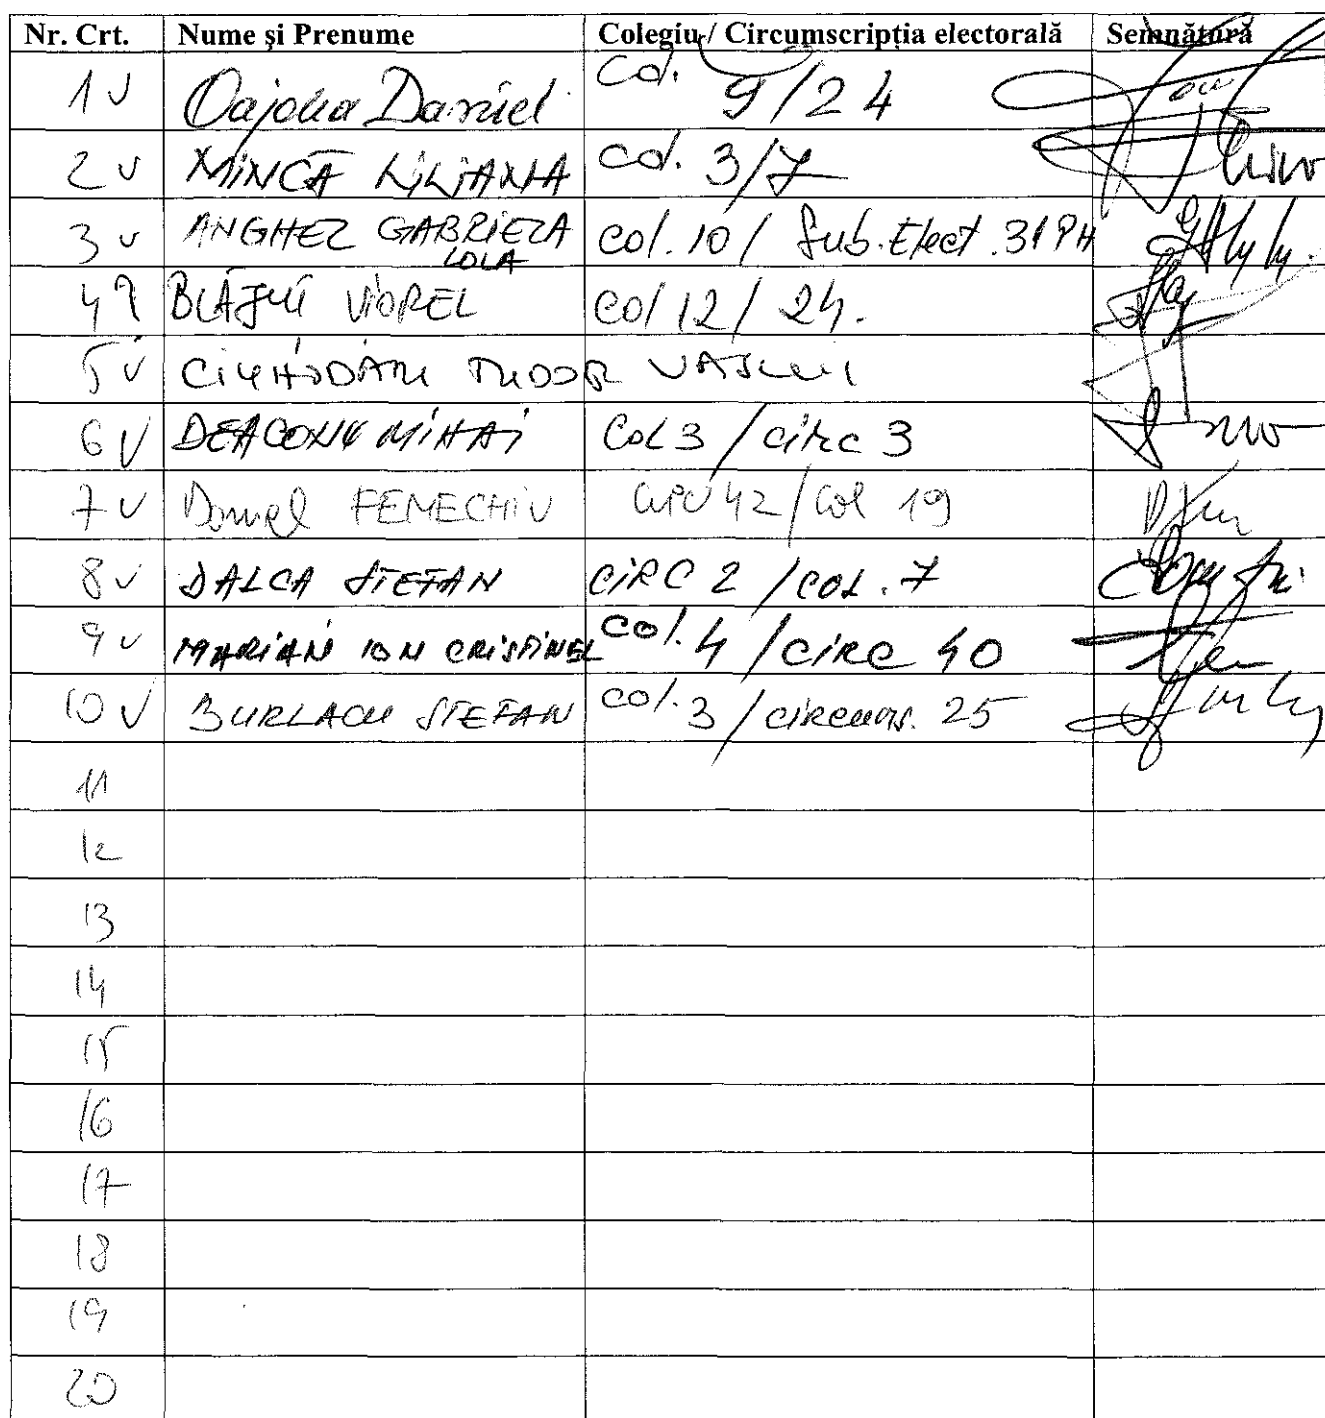 Nr. Crt. Nume și Prenume Colegiu / Circumscripția electorală Semnătură
1 v Oajdea Daniel Col. 9/24
2 v MINCĂ LILIANA Col. 3/7
3 v ANGHEL GABRIELA col. 10 / Sub. Elect. 31 PH
LOLA
4 ? BLĂJUȚ VIOREL col 12 / 24.
5 v CIUHODARU TUDOR VASLUI
6 v DEACONU MIHAI Col 3 / circ 3
7 v Daniel FENECHIU CIRC 42 / Col 19
8 v DALCA STEFAN CIRC 2 / COL. 7
9 v MARIAN ION CRISTINEL col. 4 / circ 40
10 v BURLACU STEFAN col. 3 / circums. 25
11
12
13
14
15
16
17
18
19
20